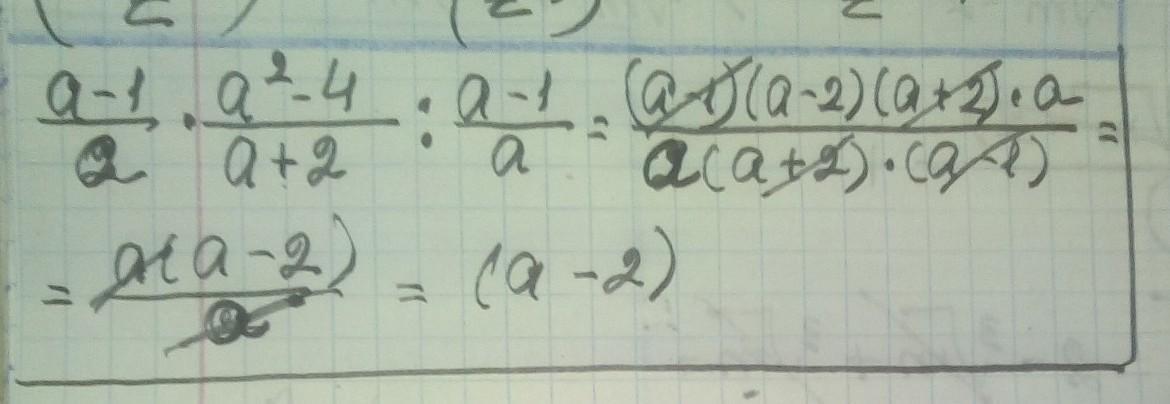 \frac{a-1}{a} \cdot \frac{a^2-4}{a+2} : \frac{a-1}{a} = \frac{(a-1)(a-2)(a+2) \cdot a}{a(a+2) \cdot (a-1)} =
= \frac{a(a-2)}{a} = (a-2)